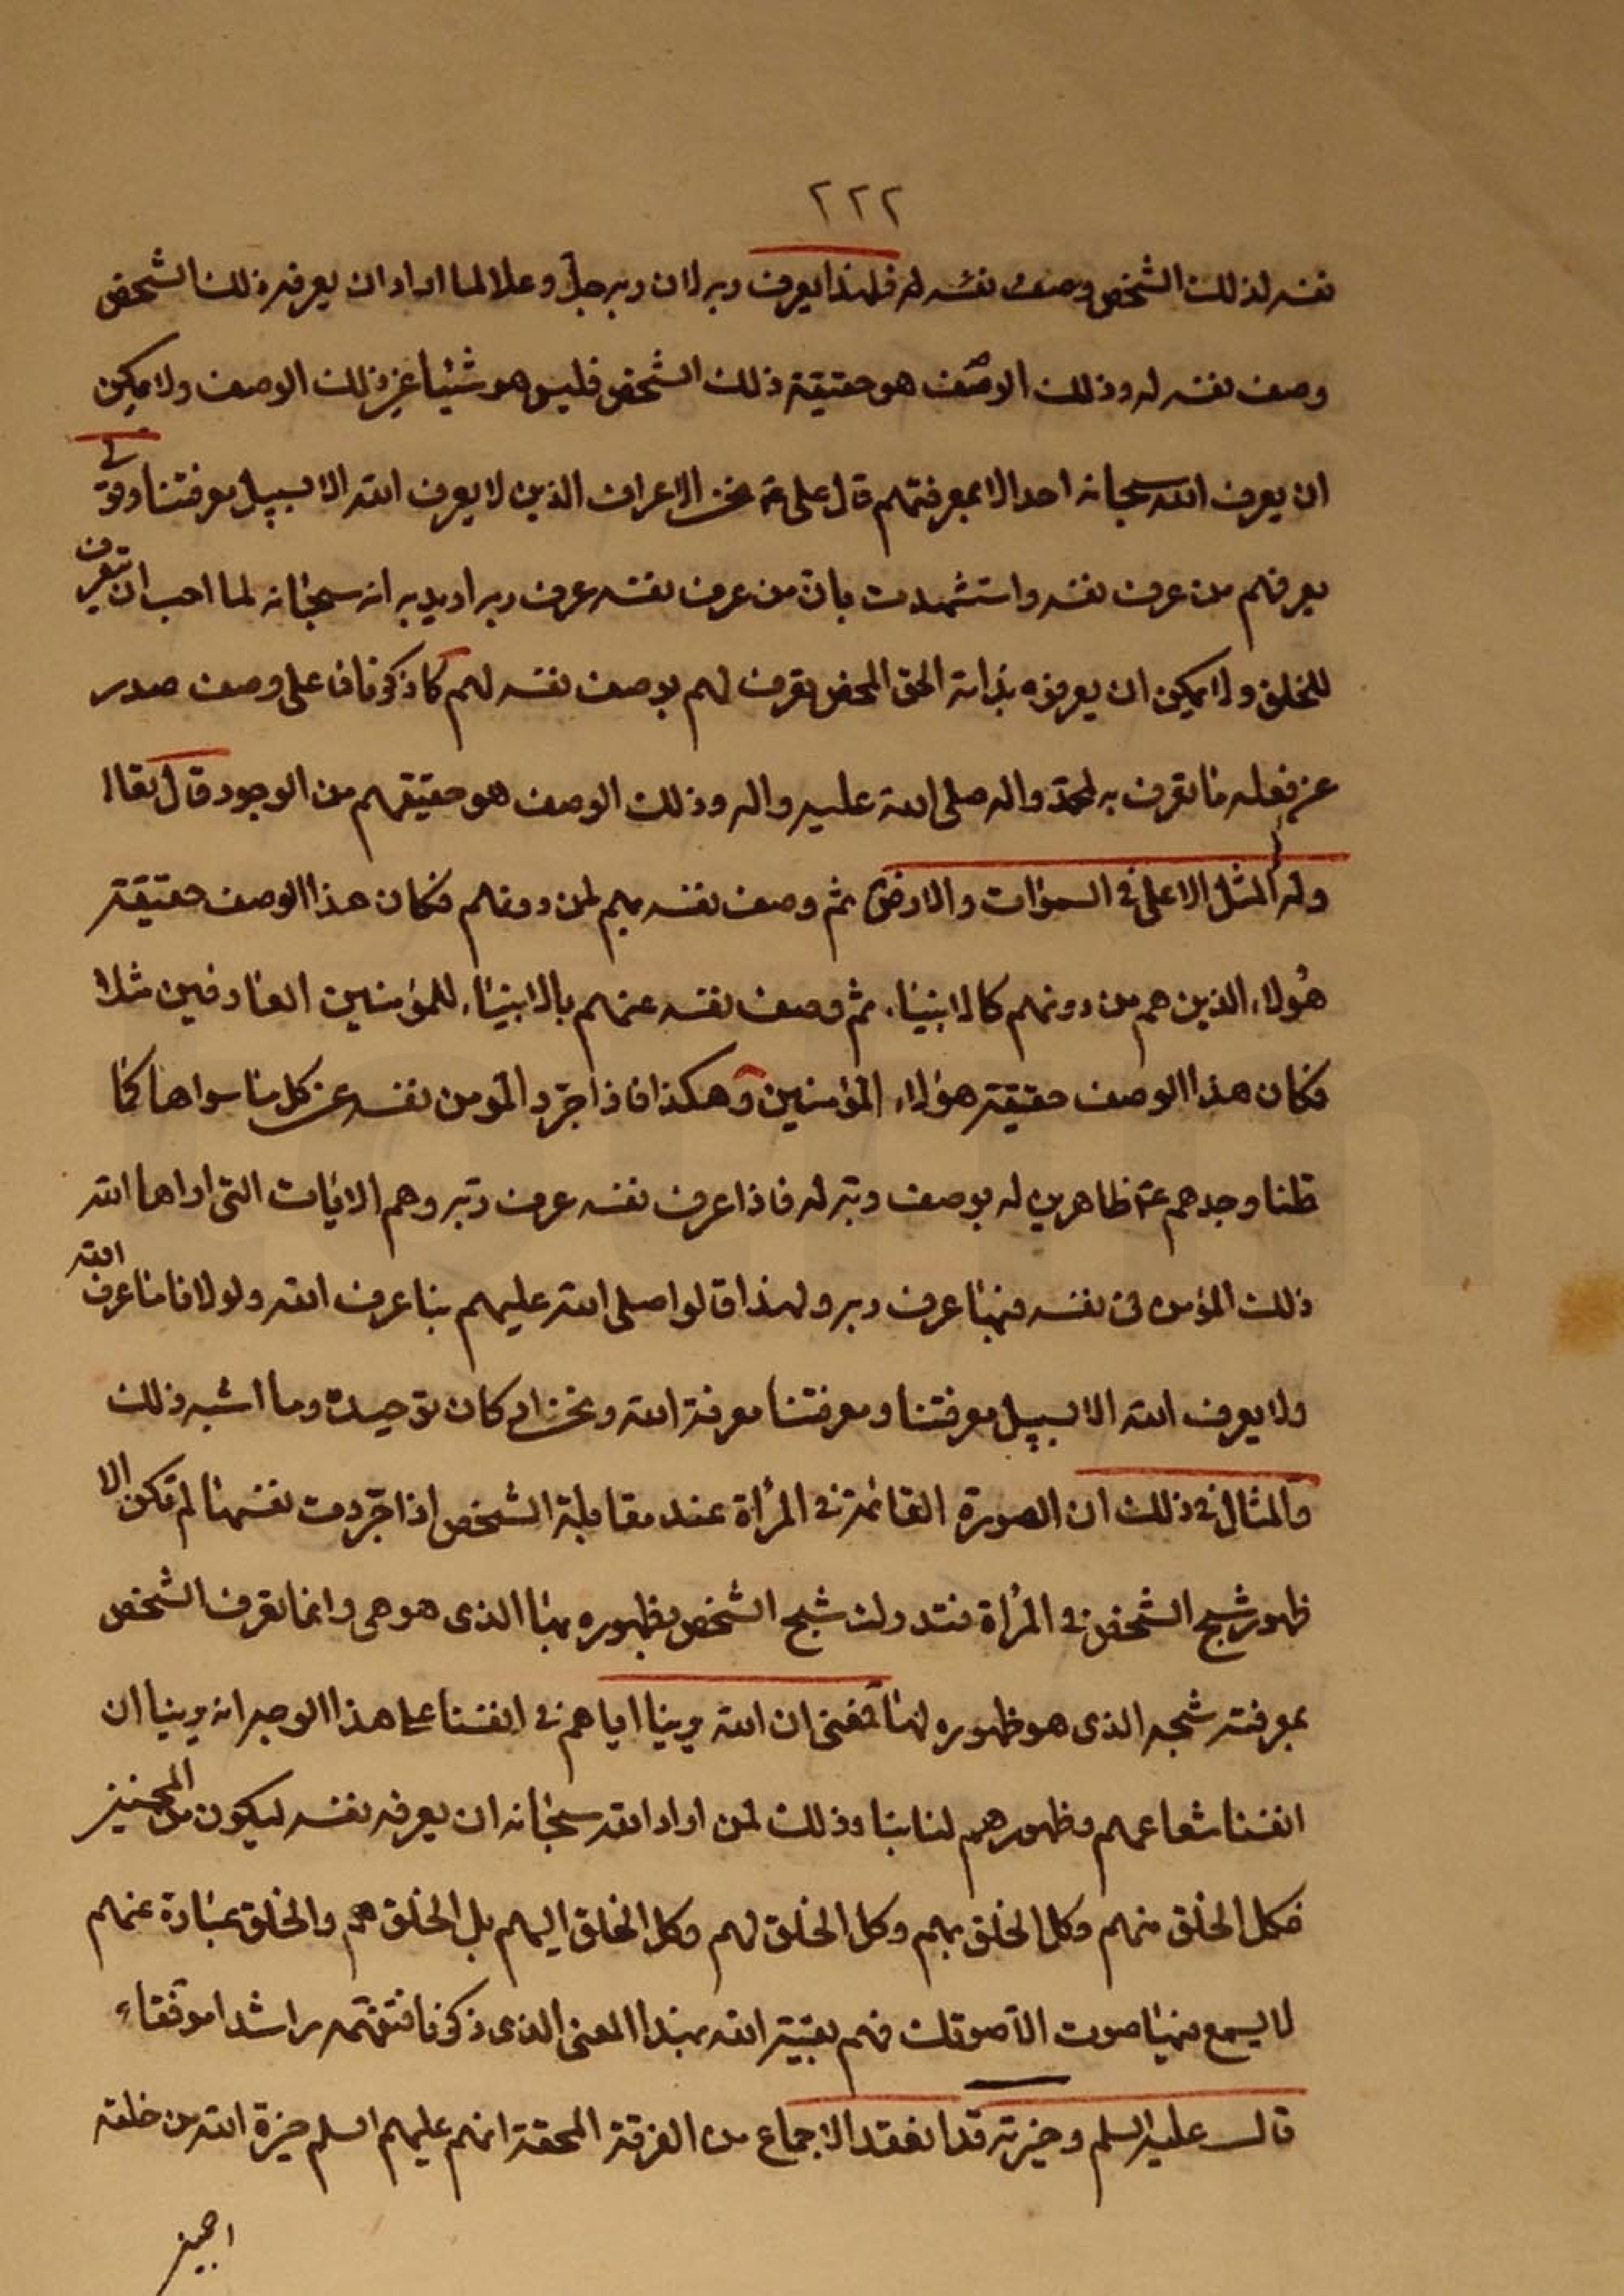 ٢٢٢
نفسه لذلك الشخص وصف نفسه له فلهذا يعرف ربه لان ربه جل وعلا لما اراد ان يعرفه ذلك الشخص
وصف نفسه له وذلك الوصف هو حقيقة ذلك الشخص فليس هو شيئا غير ذلك الوصف ولا يمكن
ان يعرف الله سبحانه احد الا بمعرفتهم قال علي ع نحن الاعراف الذين لا يعرف الله الا بسبيل معرفتنا وقولي
يعرفهم من عرف نفسه واستشهدت بان من عرف نفسه عرف ربه اريد به انه سبحانه لما احب ان يتعرف
للخلق ولا يمكن ان يعرفوه بذاته الحق المحض تعرف لهم بوصف نفسه لهم كما ذكرنا فاعلى وصف صدر
عن فعله ما تعرف به لمحمد واله صلى الله عليه واله وذلك الوصف هو حقيقتهم من الوجود قال تعالى
وله المثل الاعلى في السموات والارض ثم وصف نفسه بهم لمن دونهم فكان هذا الوصف حقيقة
هؤلاء الذين هم من دونهم كالانبياء ثم وصف نفسه عنهم بالانبياء للمؤمنين العارفين مثلا
فكان هذا الوصف حقيقة هؤلاء المؤمنين وهكذا فاذا جرد المؤمن نفسه عن كل ما سواها كما
قلنا وجدهم ع ظاهرين له بوصف ربه له فاذا عرف نفسه عرف ربه وهم الايات التي اراها الله
ذلك المؤمن في نفسه فبها عرف ربه ولهذا قالوا صلى الله عليهم بنا عرف الله ولولانا ما عرف الله
ولا يعرف الله الا بسبيل معرفتنا ومعرفتنا معرفة الله ونحن اركان توحيده وما اشبه ذلك
والمثال في ذلك ان الصورة القائمة في المرأة عند مقابلة الشخص اذا جردت نفسها لم تكن الا
ظهور شبح الشخص في المرأة فتدرك شبح الشخص بظهوره بها الذي هو هي وانما تعرف الشخص
بمعرفة شبحه الذي هو ظهوره لها فمعنى ان الله يرينا اياهم في انفسنا على هذا الوجه انه يرينا ان
انفسنا شعاعهم وظهورهم لنا بنا وذلك لمن اراد الله سبحانه ان يعرفه نفسه ليكون من المحسنين
فكل الخلق منهم وكل الخلق بهم وكل الخلق لهم وكل الخلق اليهم بل الخلق هم والخلق عبارة عنهم
لا يسمع فيها صوت الا صوتك فهم بقية الله بهذا المعنى الذي ذكرنا فتفهمه راشدا موفقا
قال عليه السلم وخيرته قد انعقد الاجماع من الفرقة المحقة انهم عليهم السلم خيرة الله من خلقه
اجمعين